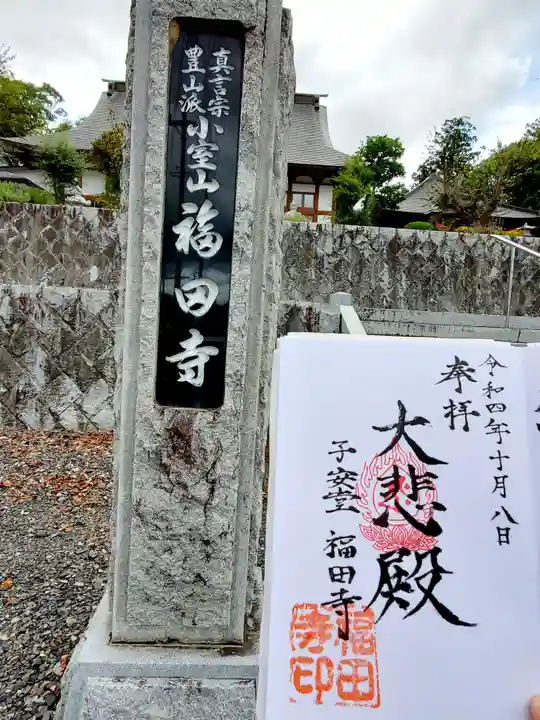 真言宗
豊山派
小室山福田寺
令和四年十月八日
奉拝
大悲殿
子安堂 福田寺
福田
寺印